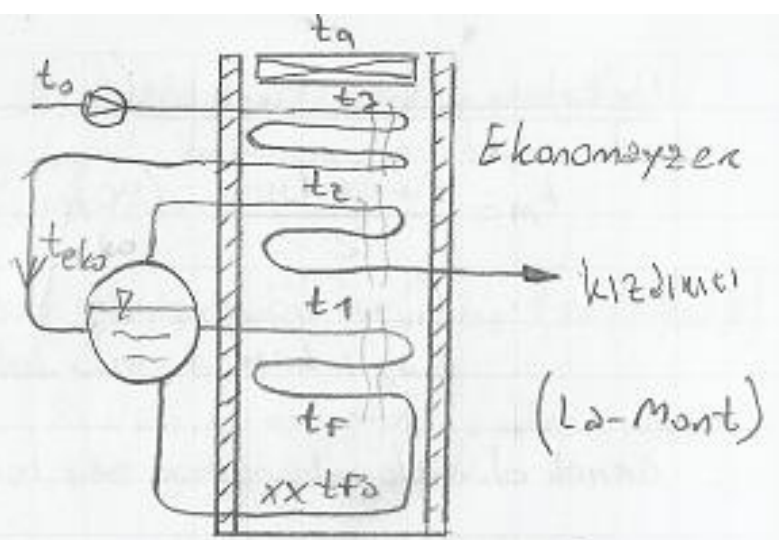 ta
to
t3
Ekonomayzer
t2
teko
kızdırıcı
t1
(La-Mont)
tF
xx tFo